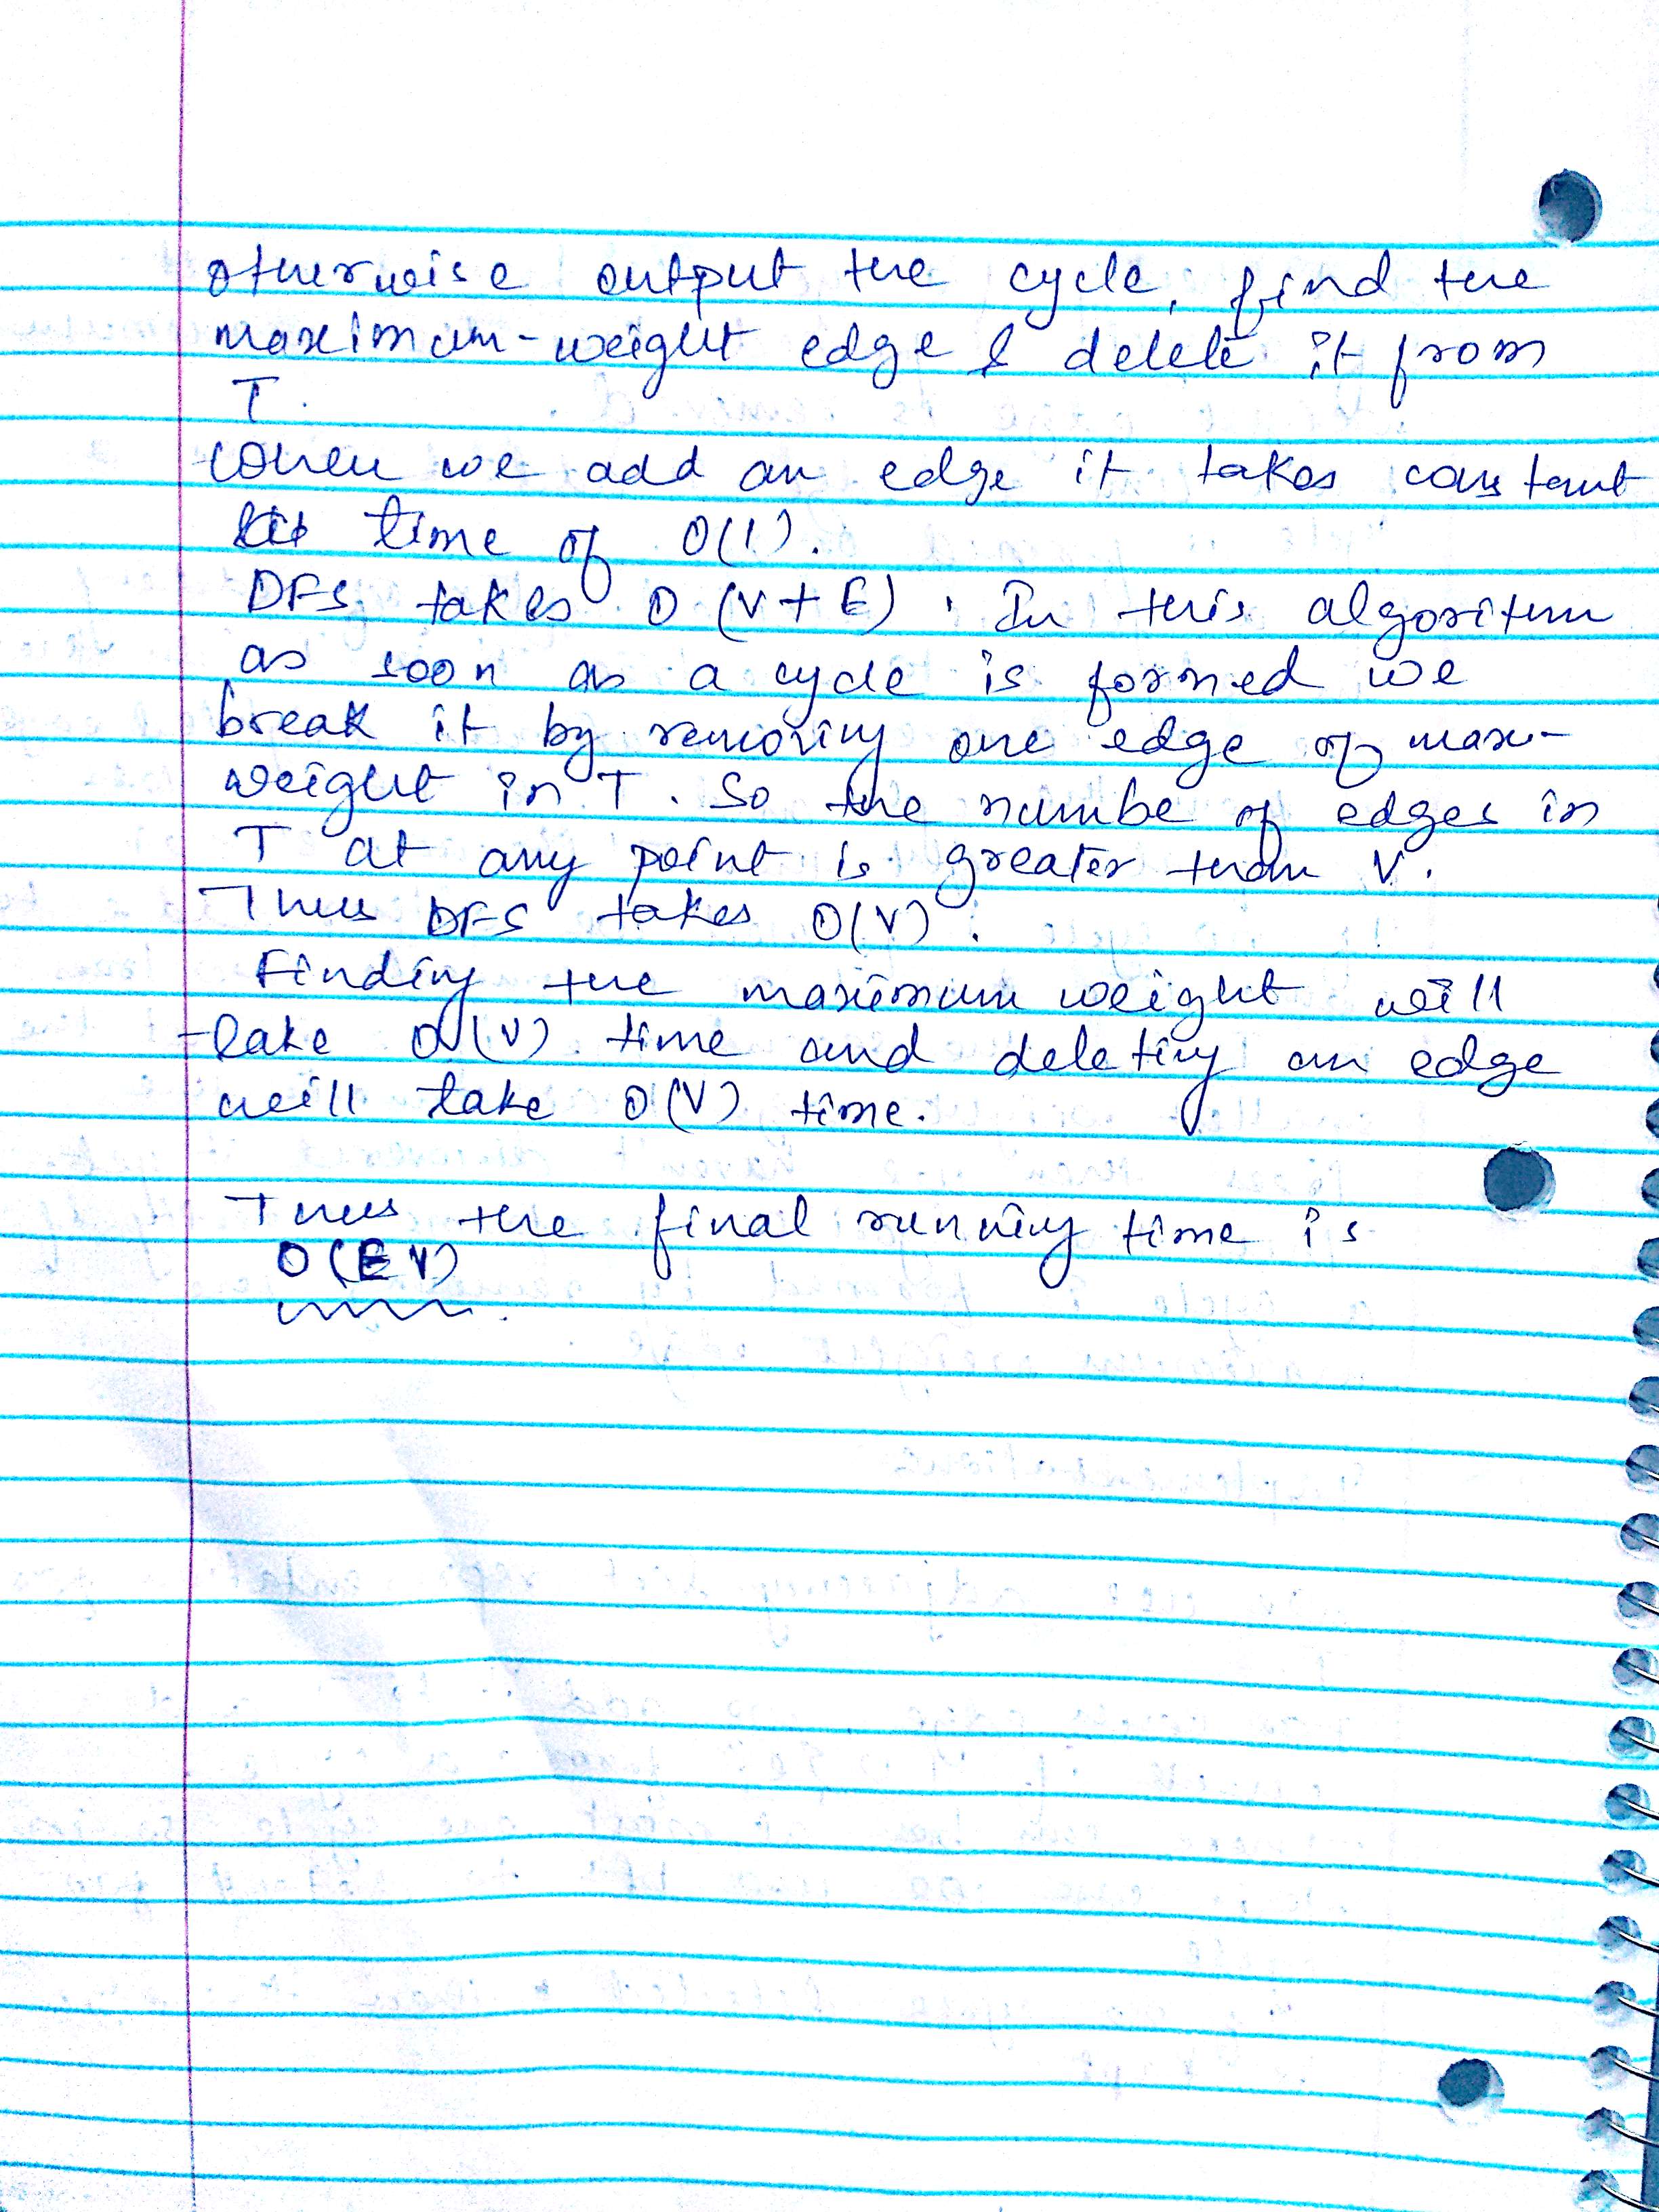 otherwise output the cycle, find the
maximum-weight edge & delete it from
T.
when we add an edge it takes constant
time of O(1).
DFS takes O(V+E). In this algorithm
as soon as a cycle is formed we
break it by removing one edge of max-
weight in T. So the numbe of edges in
T at any point is greater than V.
Thus DFS takes O(V).
Finding the maximum weight will
take O(V) time and deleting an edge
will take O(V) time.
Thus the final running time is
O(EV)